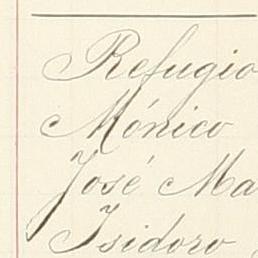 Refugio
Mónico
José Ma
Isidoro